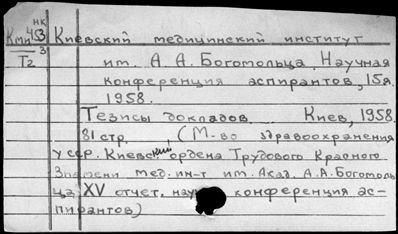 НК
КМИ 4.3 Киевский медицинский институт
3
Т2 им. А. А. Богомольца. Научная
конференция аспирантов, 15я.
1958.
Тезисы докладов. Киев, 1958.
81 стр. (М-во здравоохранения
УССР. Киевский ордена Трудового Красного
Знамени мед. ин-т им. Акад. А. А. Богомоль
ца XV отчет. конференция ас-
пирантов)